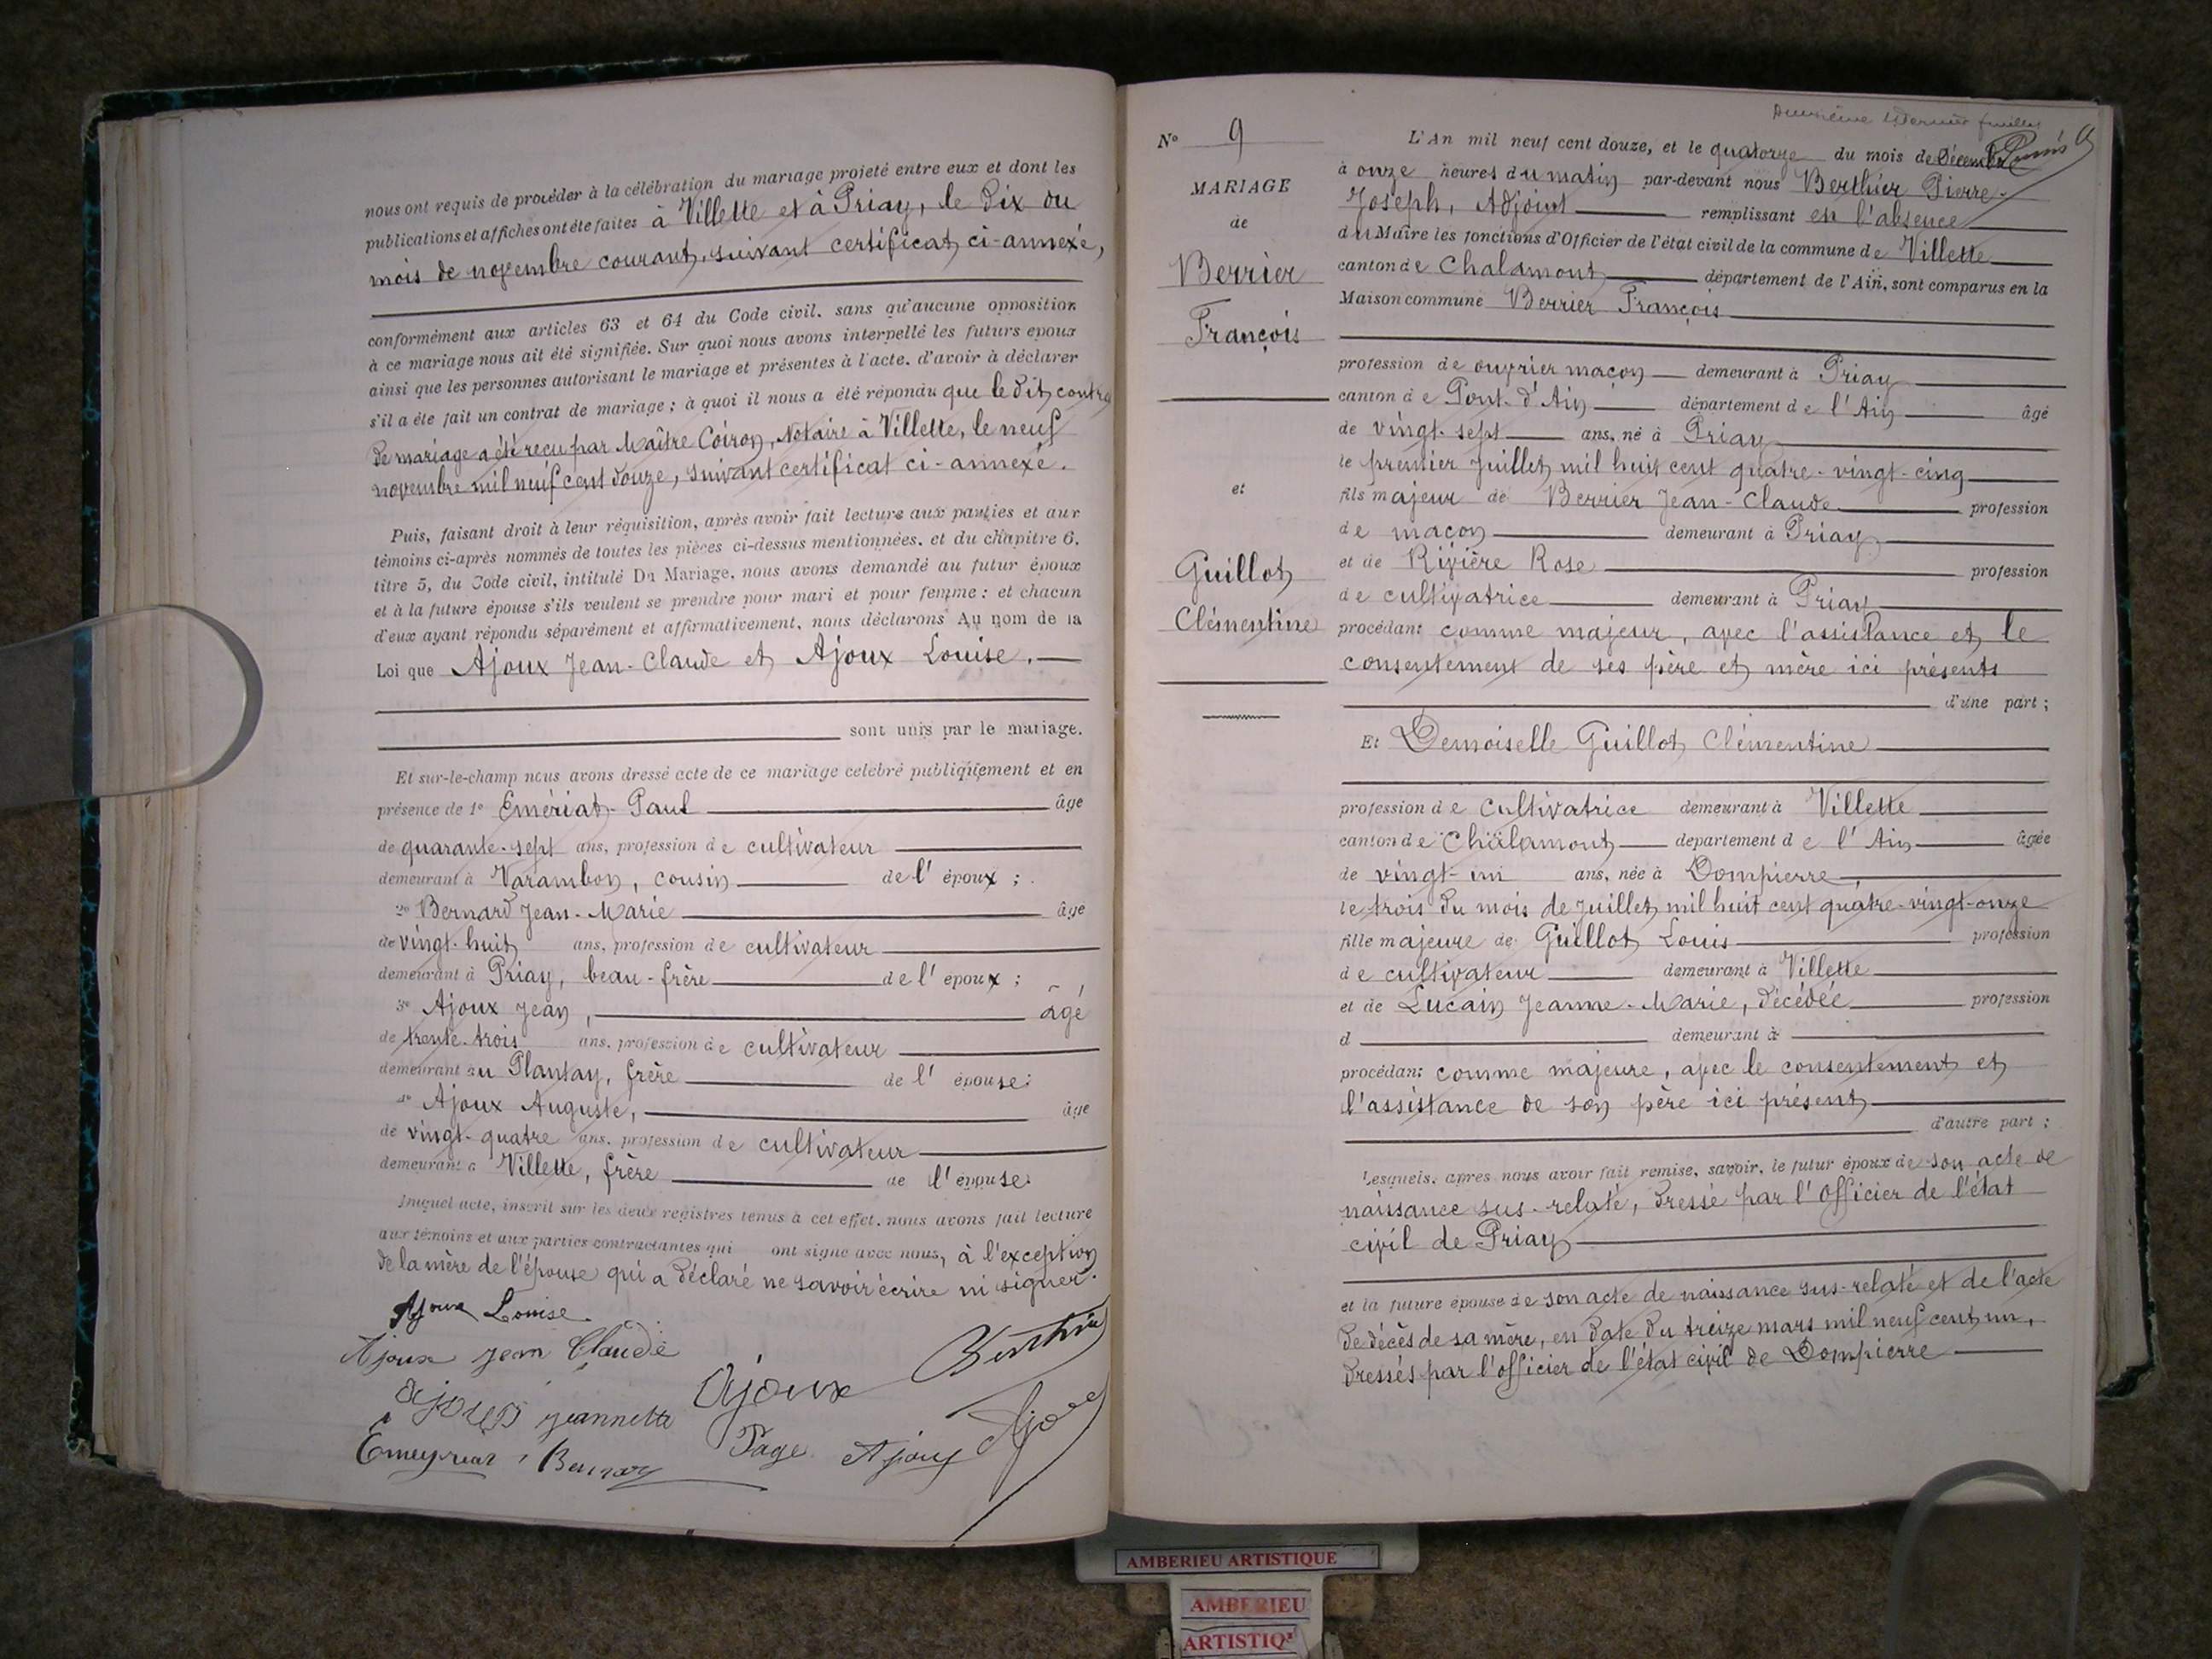 nous ont requis de procéder à la célébration du mariage projeté entre eux et dont les
publications et affiches ont été faites à Villette et à Priay, le dix du
mois de novembre courant, suivant certificat ci-annexé,
conformément aux articles 63 et 64 du Code civil, sans qu'aucune opposition
à ce mariage nous ait été signifiée. Sur quoi nous avons interpellé les futurs époux
ainsi que les personnes autorisant le mariage et présentes à l'acte, d'avoir à déclarer
s'il a été fait un contrat de mariage ; à quoi il nous a été répondu que le dit contrat
de mariage a été reçu par Maître Coiron, Notaire à Villette, le neuf
novembre mil neuf cent douze, suivant certificat ci-annexé.
Puis, faisant droit à leur réquisition, après avoir fait lecture aux parties et aux
témoins ci-après nommés de toutes les pièces ci-dessus mentionnées, et du chapitre 6,
titre 5, du Code civil, intitulé Du Mariage, nous avons demandé au futur époux
et à la future épouse s'ils veulent se prendre pour mari et pour femme : et chacun
d'eux ayant répondu séparément et affirmativement, nous déclarons Au nom de la
Loi que Ajoux Jean-Claude et Ajoux Louise.
sont unis par le mariage.
Et sur-le-champ nous avons dressé acte de ce mariage célébré publiquement et en
présence de 1º Emériat Paul âgé
de quarante-sept ans, profession de cultivateur
demeurant à Varambon, cousin de l'époux ;
2º Bernard Jean-Marie âgé
de vingt-huit ans, profession de cultivateur
demeurant à Priay, beau-frère de l'époux ;
3º Ajoux Jean, âgé
de trente-trois ans, profession de cultivateur
demeurant au Plantay, frère de l'épouse ;
4º Ajoux Auguste, âgé
de vingt-quatre ans, profession de cultivateur
demeurant à Villette, frère de l'épouse.
Duquel acte, inscrit sur les deux registres tenus à cet effet, nous avons fait lecture
aux témoins et aux parties contractantes qui ont signé avec nous, à l'exception
de la mère de l'épouse qui a déclaré ne savoir écrire ni signer.
Ajoux Louise
Ajoux Jean Claude
Ajoux
Berthier
Ajoux Jeannette
Page
Ajoux
Ajoux
Emeyriat
Bernard
Nº 9
MARIAGE
de
Berrier
François
et
Guillot
Clémentine
L'An mil neuf cent douze, et le quatorze du mois de Décembre
à onze heures du matin par-devant nous Berthier Pierre-
Joseph, Adjoint remplissant en l'absence
du Maire les fonctions d'Officier de l'état civil de la commune de Villette
canton de Chalamont département de l'Ain, sont comparus en la
Maison commune Berrier François
profession de ouvrier maçon demeurant à Priay
canton de Pont-d'Ain département de l'Ain âgé
de vingt-sept ans, né à Priay
le premier Juillet mil huit cent quatre-vingt-cinq
fils majeur de Berrier Jean-Claude profession
de maçon demeurant à Priay
et de Rivière Rose profession
de cultivatrice demeurant à Priay
procédant comme majeur, avec l'assistance et le
consentement de ses père et mère ici présents
d'une part ;
Et Demoiselle Guillot Clémentine
profession de cultivatrice demeurant à Villette
canton de Chalamont département de l'Ain âgée
de vingt-un ans, née à Dompierre
le trois du mois de juillet mil huit cent quatre-vingt-onze
fille majeure de Guillot Louis profession
de cultivateur demeurant à Villette
et de Lucain Jeanne-Marie, décédée profession
d demeurant à
procédant comme majeure, avec le consentement et
l'assistance de son père ici présent
d'autre part ;
Lesquels, après nous avoir fait remise, savoir, le futur époux de son acte de
naissance sus-relaté, dressé par l'Officier de l'état
civil de Priay
et la future épouse de son acte de naissance sus-relaté et de l'acte
de décès de sa mère, en date du treize mars mil neuf cent un,
dressés par l'officier de l'état civil de Dompierre
AMBERIEU ARTISTIQUE
AMBERIEU
ARTISTIQ